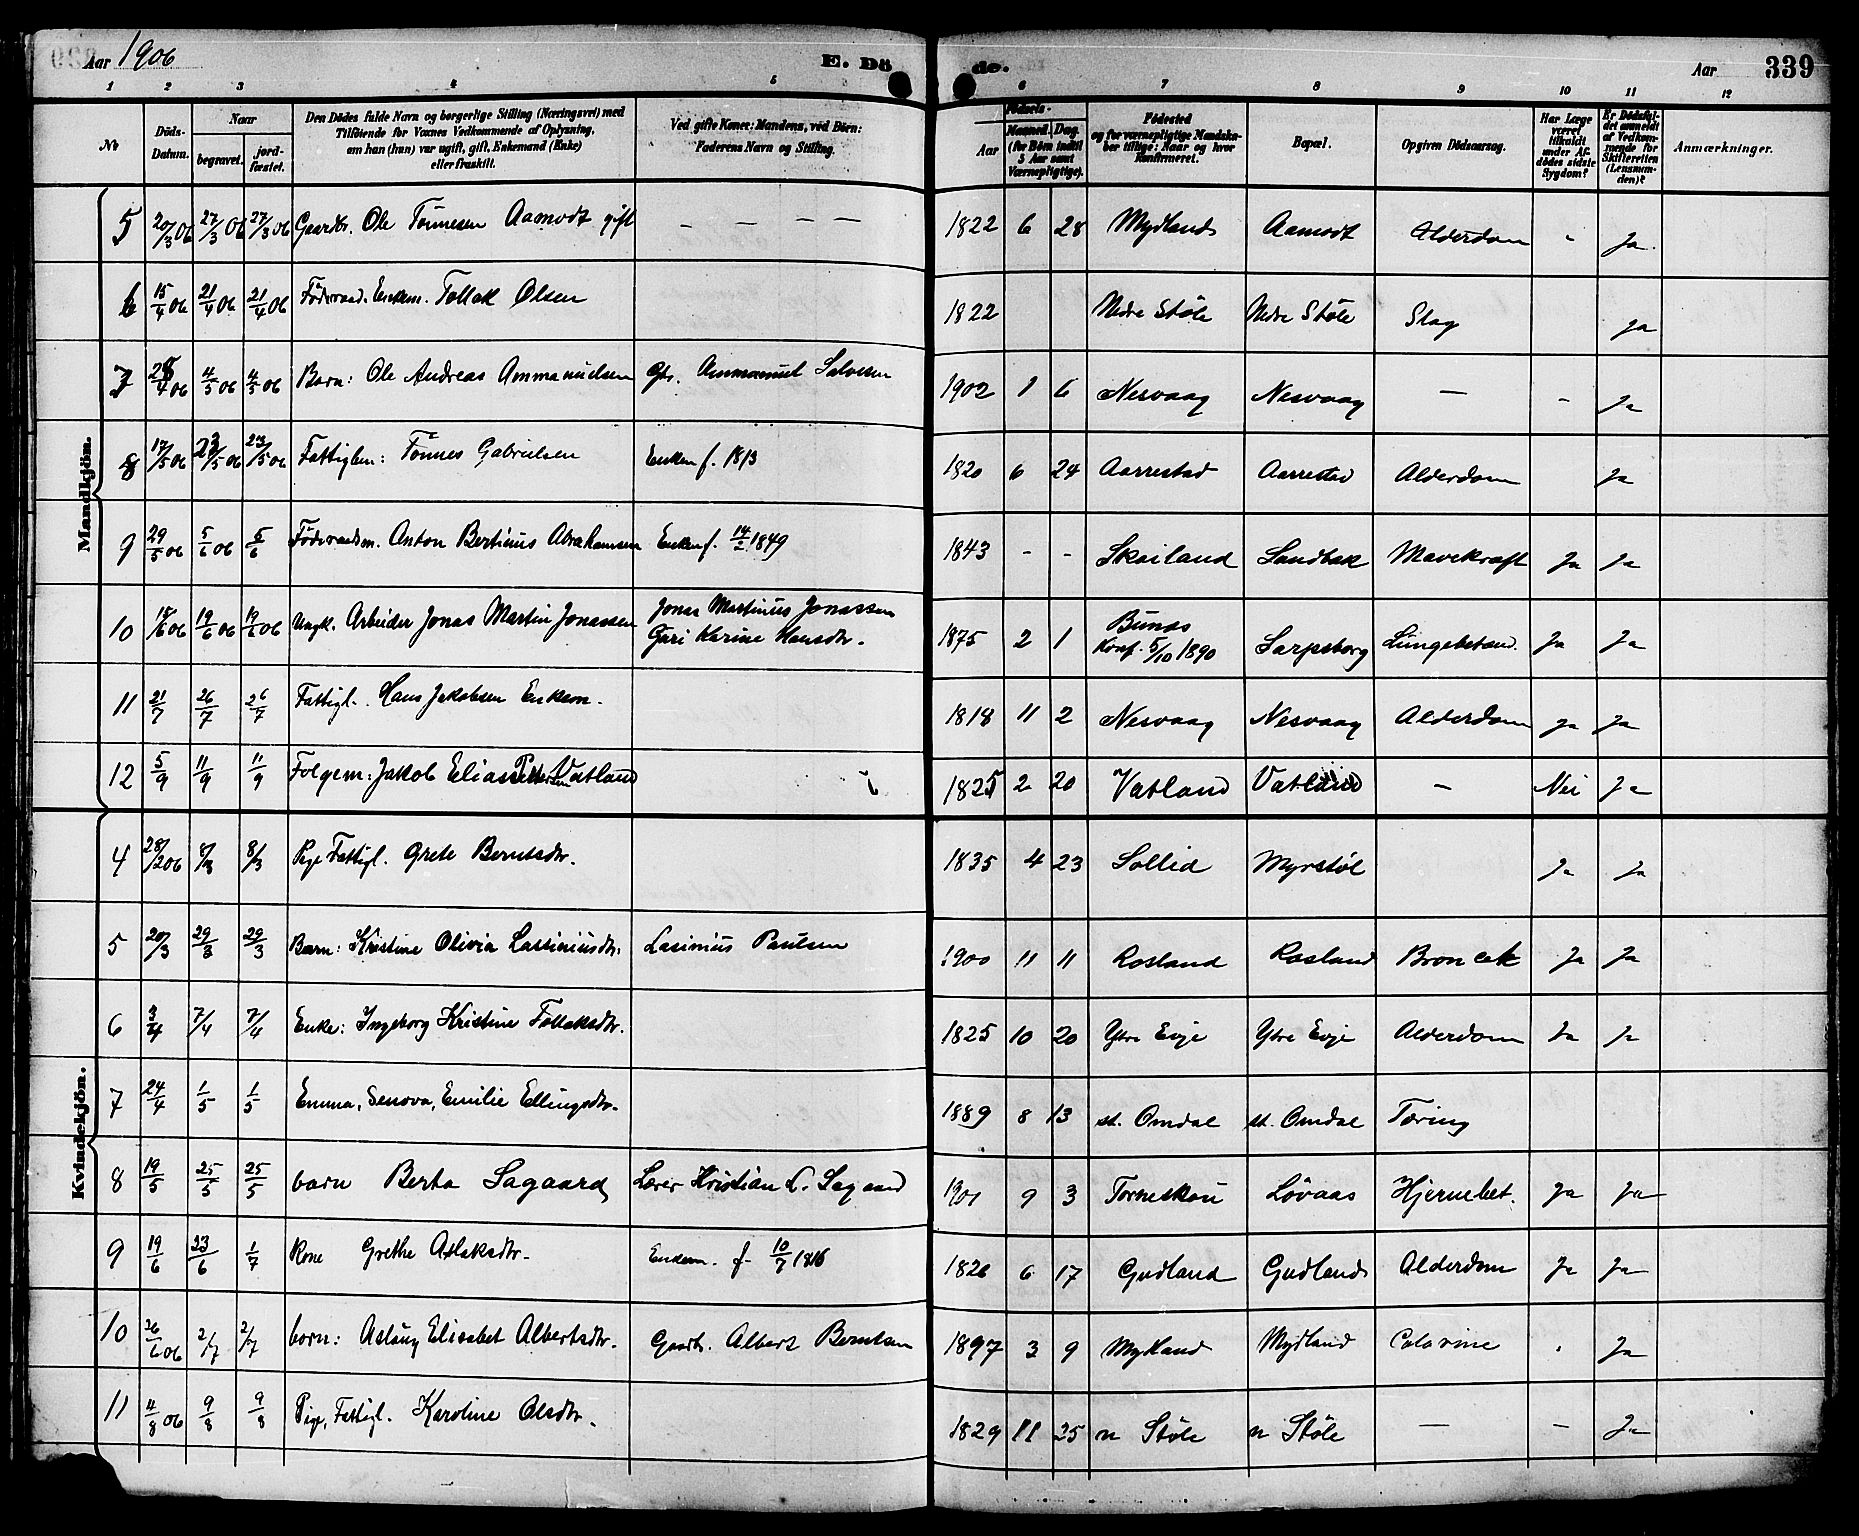 Aar 1906
E. Dö
de.
Aar
339
1 2 3 4 5 6 7 8 9 10 11 12
No
Döds-Datum.
Naar
begravet.
jord-fæstet.
Den Dödes fulde Navn og borgerlige Stilling (Næringsvei) med
Tilföiende for Voxnes Vedkommende af Oplysning,
om han (hun) var ugift, gift, Enkemand (Enke)
eller fraskilt.
Ved gifte Koner: Mandens, ved Börn:
Faderens Navn og Stilling.
Födsels-
Aar
Maaned. Dag.
(for Börn indtil
5 Aar samt
Værnepligtige).
Födested
og for værnepligtige Mandskaber tillige: Naar og hvor
Konfirmeret.
Bopæl.
Opgiven Dödsaarsag.
Har Læge
været
tilkaldt
under Afdödes sidste
Sygdom?
Er Dödsfaldet anmeldt
af Vedkommende for
Skifteretten
(Lensmanden)?
Anmærkninger.
Mandkjön.
5 20/3 06 27/3 06 27/3 06 Gaardbr. Ole Tönnesen Aamodt gift — — — — 1822 6 28 Mydland Aamodt Alderdom " Ja
6 15/4 06 21/4 06 21/4 06 Föderaad. Enkem. Tollak Olsen 1822 Nedre Støle Nedre Støle Slag Ja
7 4/5 06 4/5 06 Barn: Ole Andreas Ammanuelsen Gbr. Ammanuel Salvesen 1902 1 6 Nesvaag Nesvaag — - Ja
8 17/5 06 23/5 06 23/5 06 Fattiglem: Tönnes Gabrielsen Enkem f. 1813 1820 6 24 Aarrestad Aarrestad Alderdom Ja
9 29/5 06 5/6 06 5/6 Föderaadsm. Anton Bertinius Abrahamsen Enkem f. 14/2 1849 1843 - - Skailand Sandbak Mavekræft Ja Ja
10 19/6 06 19/6 06 Ungk. Arbeider Jonas Martin Jonassen Jonas Martinius Jonassen
Guri Karine Hansdtr. 1875 2 1 Bunes
Konf. 5/10 1890 Sarpsborg Lungebetænd. Ja Ja
11 21/7 26/7 26/7 Fattigl. Hans Jakobsen Enkem. 1818 11 2 Nesvaag Nesvaag Alderdom Ja Ja
12 5/9 11/9 11/9 Folgem: Jakob Elias Pettersen Vatland 1825 2 20 Vatland Vatland — Nei Ja
Kvindekjön.
4 28/2 06 8/3 8/3 Pige Fattigl. Grete Berntsdtr. 1835 4 23 Sollid Myrstøl Ja Ja
5 20/3 29/3 29/3 Barn: Kristine Olivia Lassiniusdtr. Lasinius Paulsen 1900 11 11 Rosland Rosland Bron cat Ja Ja
6 3/4 7/4 7/4 Enke: Ingeborg Kristine Tollaksdtr. 1825 10 20 Ytre Evje Ytre Evje Alderdom Ja Ja
7 24/4 1/5 1/5 Emma, Senova, Emilie Ellingsdtr. 1889 8 13 st. Omdal st. Omdal Tæring
8 19/5 25/5 25/5 barn Berta Sagaard Lærer Kristian L. Sagaard 1901 9 3 Torneskau Løvaas Hjernebet. Ja Ja
9 19/6 23/6 1/7 Kone Grethe Aslaksdtr. Enkem. f. 10/7 1816 1826 6 17 Gudland Gudland Alderdom Ja Ja
10 26/6 06 2/7 2/7 barn: Aslaug Elisabet Albertsdtr. Gaardb. Albert Berntsen 1897 3 9 Mydland Mydland Colorine " Ja
11 4/8 06 9/8 9/8 Pige, Fattigl. Karoline Olsdtr. 1829 11 25 n Støle n Støle — - Ja